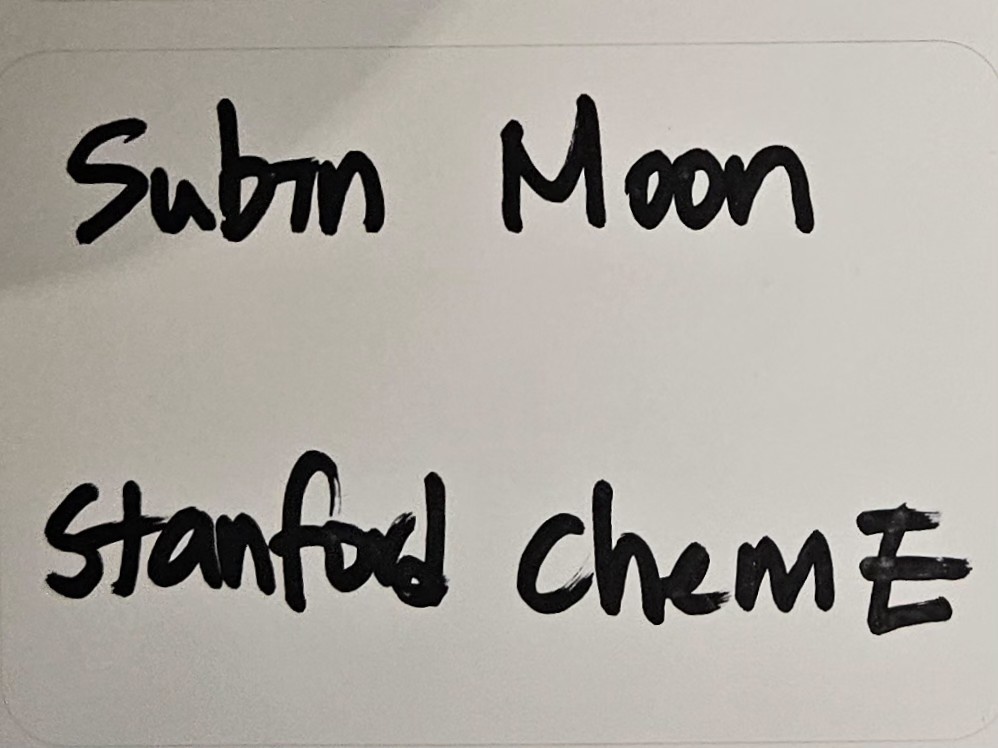 Subin Moon
Stanford ChemE